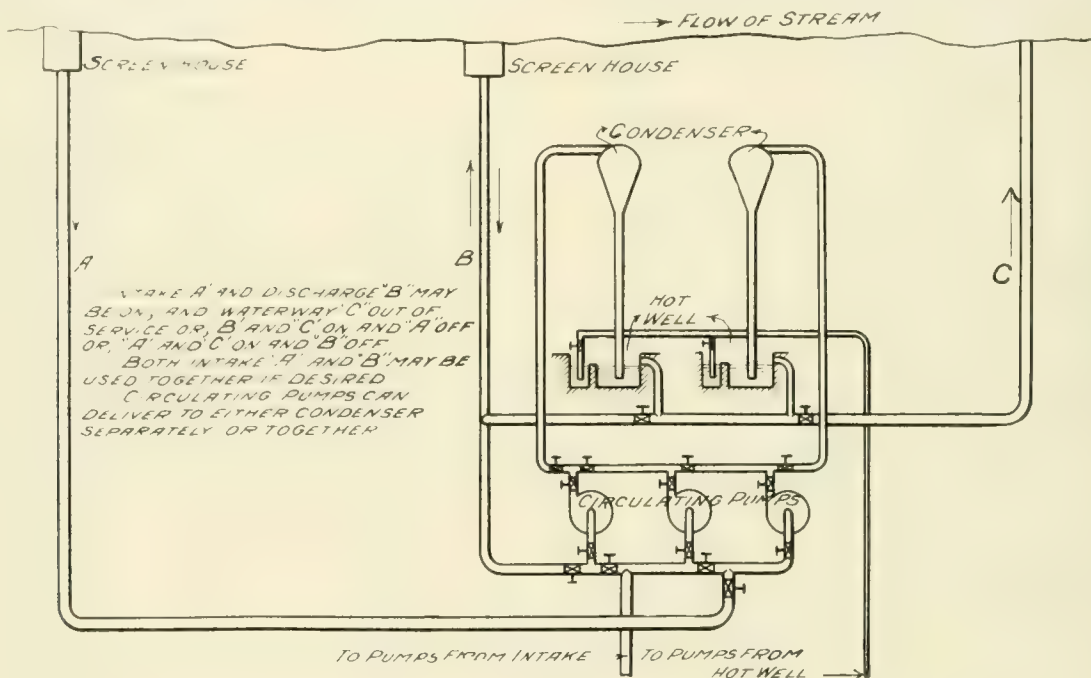 FLOW OF STREAM
SCREEN HOUSE
SCREEN HOUSE
CONDENSER
A
B
C
INTAKE "A" AND DISCHARGE "B" MAY
BE ON, AND WATERWAY "C" OUT OF
SERVICE OR, "B" AND "C" ON AND "A" OFF
OR, "A" AND "C" ON AND "B" OFF
BOTH INTAKE "A" AND "B" MAY BE
USED TOGETHER IF DESIRED
CIRCULATING PUMPS CAN
DELIVER TO EITHER CONDENSER
SEPARATELY OR TOGETHER
HOT
WELL
CIRCULATING PUMPS
TO PUMPS FROM INTAKE
TO PUMPS FROM
HOT WELL